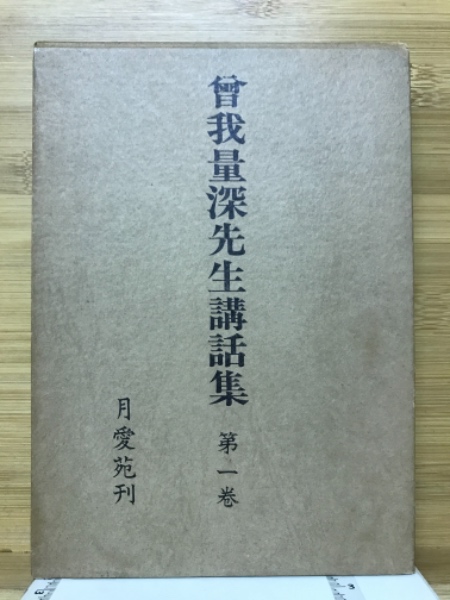 曾我量深先生講話集 第一巻
月愛苑刊